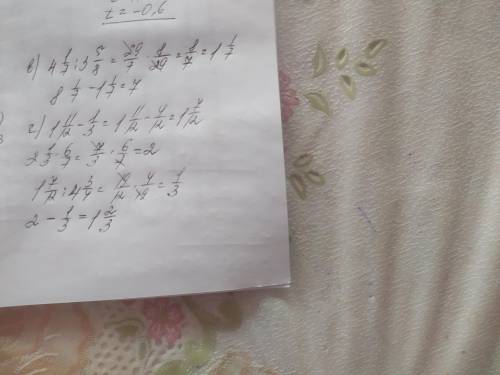 t = -0,6
в) 4 1/7 : 3 5/8 = 29/7 · 8/29 = 8/7 = 1 1/7
8 1/7 - 1 1/7 = 7
г) 1 11/12 - 1/3 = 1 11/12 - 4/12 = 1 7/12
2 1/3 · 6/7 = 7/3 · 6/7 = 2
1 7/12 : 4 3/4 = 19/12 · 4/19 = 1/3
2 - 1/3 = 1 2/3